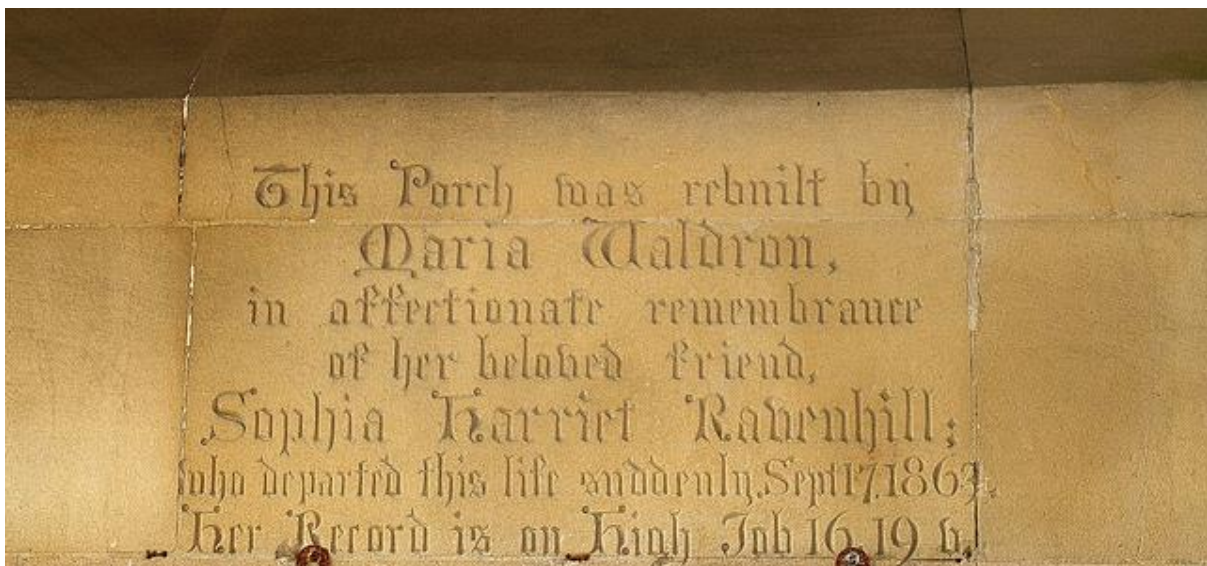 This Porch was rebuilt by
Maria Waldron,
in affectionate remembrance
of her beloved friend,
Sophia Harriet Ravenhill;
who departed this life suddenly, Sept 17, 1863.
Her Record is on High Job 16, 19 v.